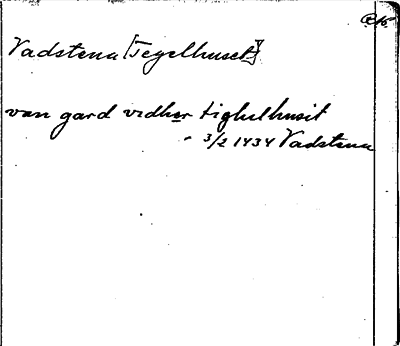 Vadstena [Tegelhuset]
van gard vidher tighelhusit
3/2 1434 Vadstena